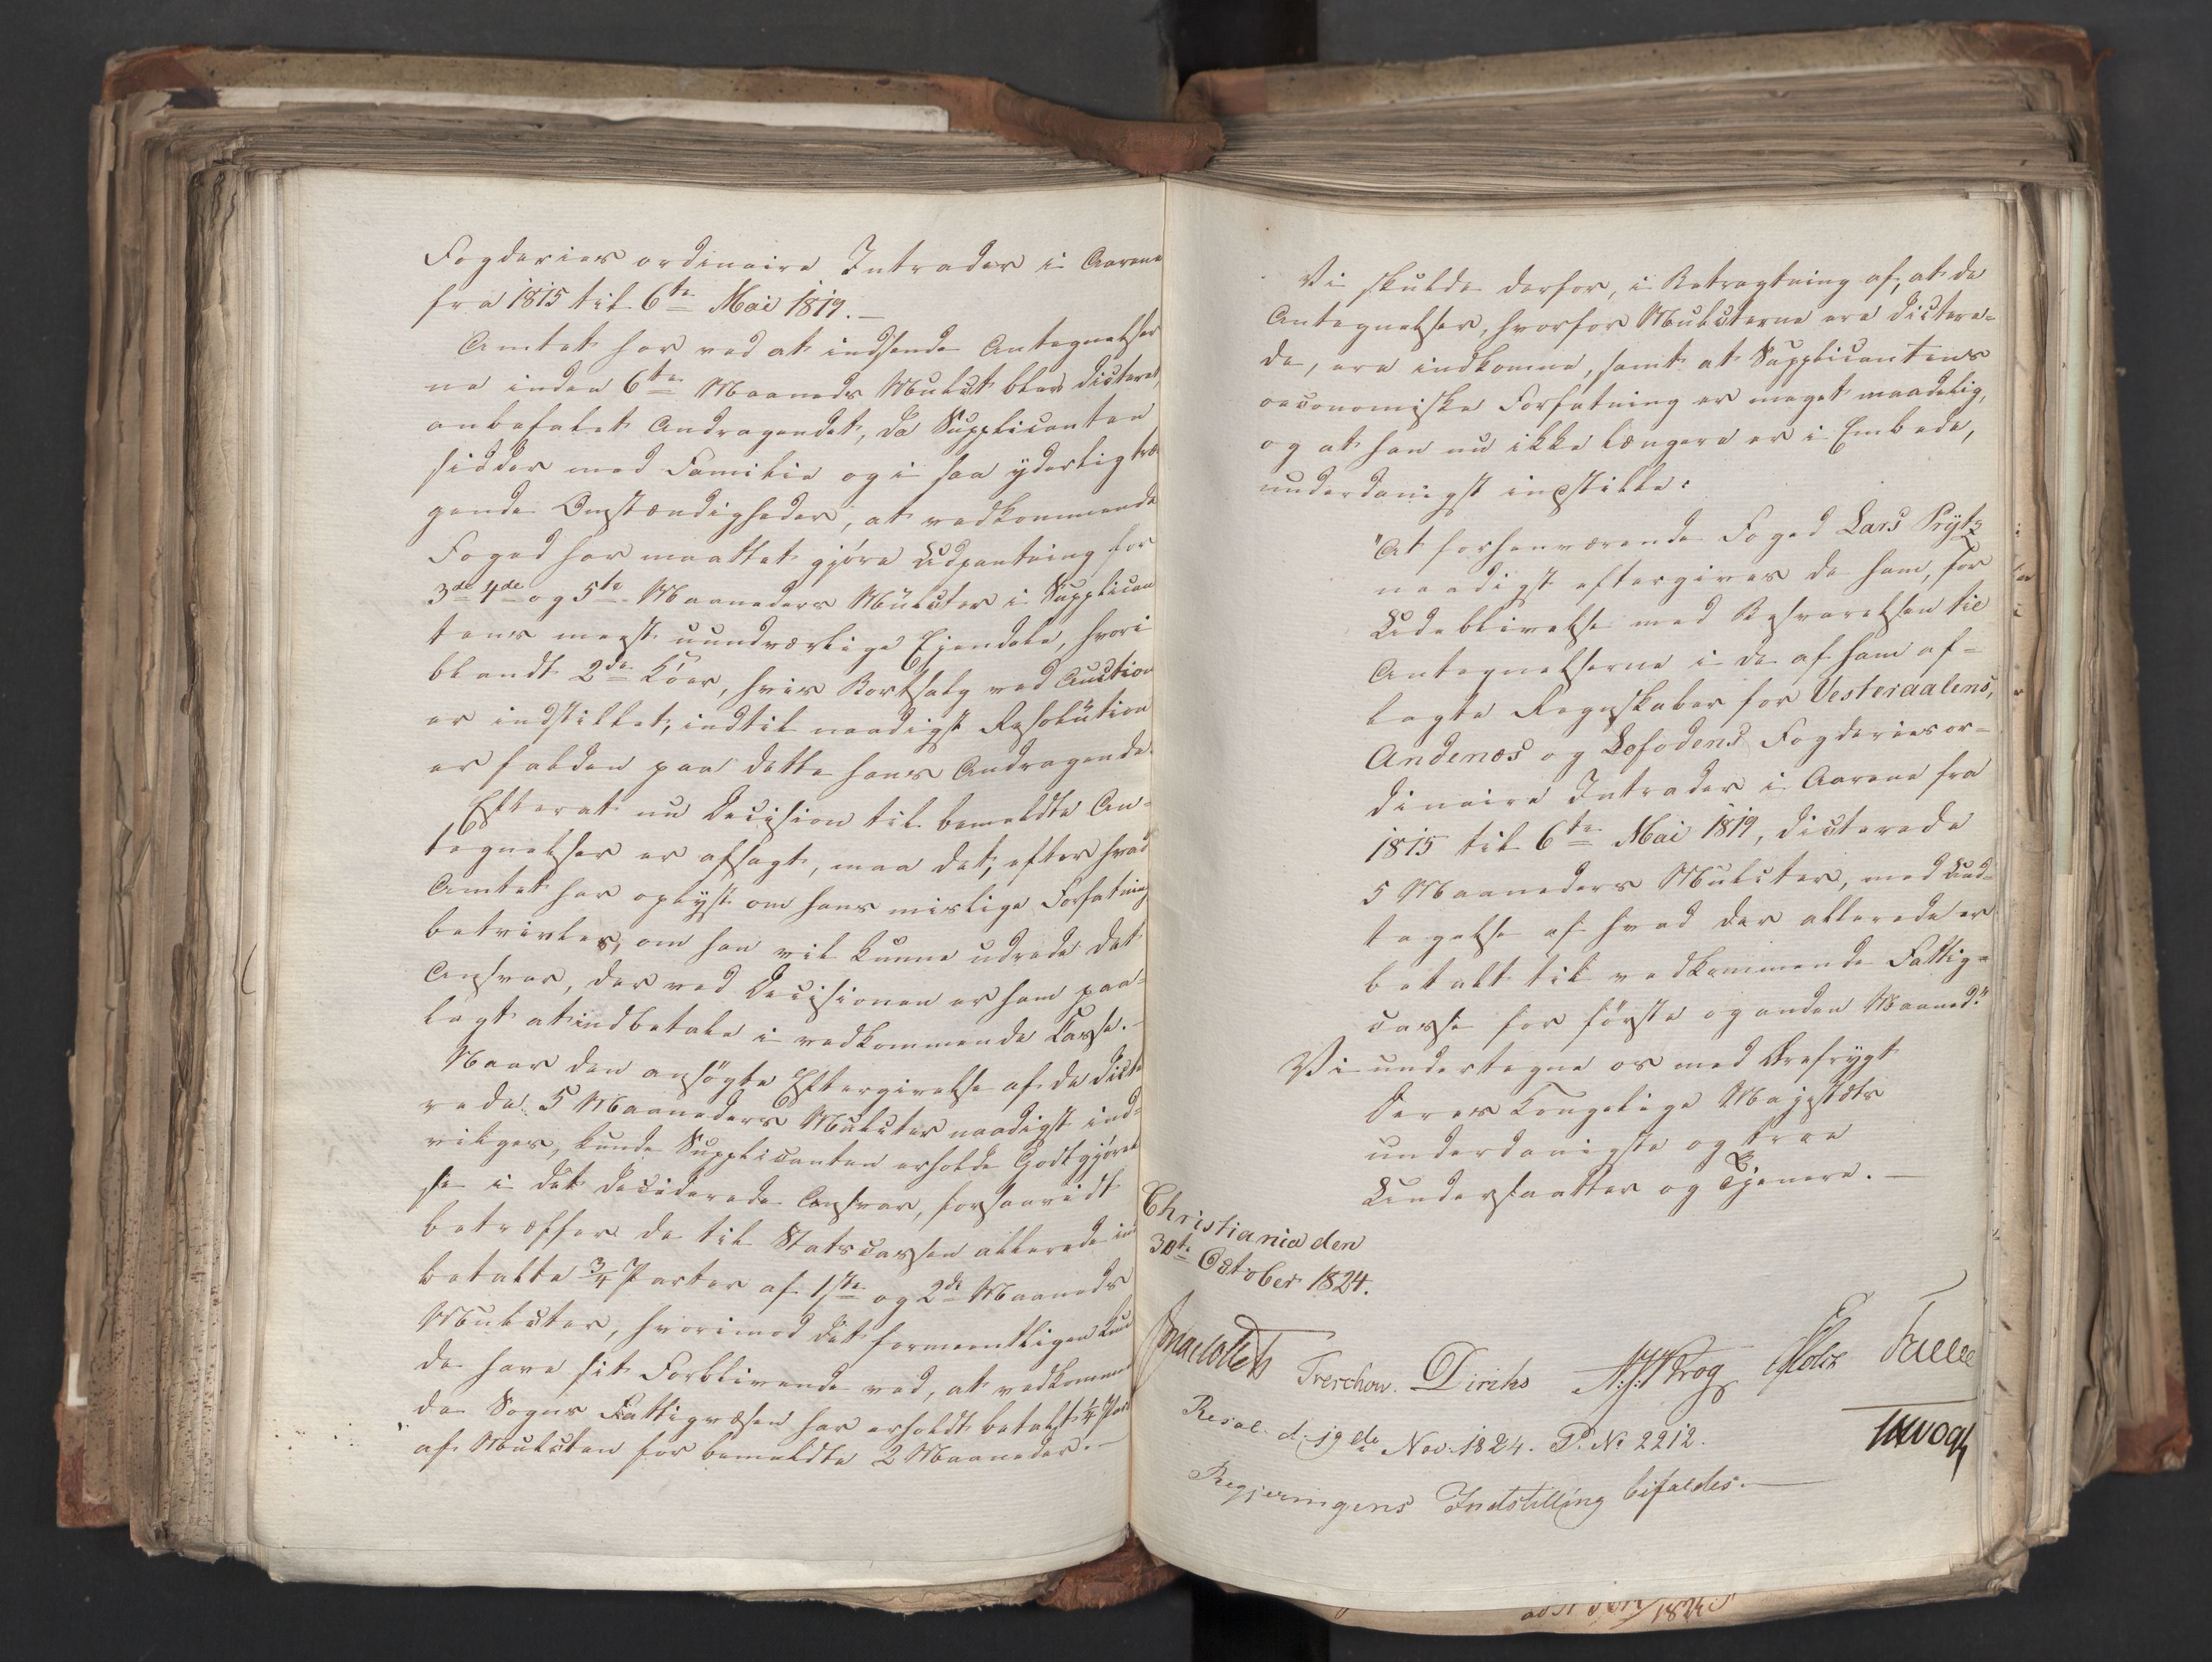 Fogderies ordinaire Intrader i Aarene
fra 1815 til 6te Mai 1819.-
Amtet har ved at indsende Antegnelser
ne inden 6te Maaneds Mulct blev dicteret,
anbefalet Andragendet, da Supplicanten
sidder med Familie og i saa yderlig træ
gende Omstændigheder, at vedkommende
Foged har maattet gjøre Udpantning for
3de 4de og 5te Maaneders Mulcter i Supplican
tens meest uundværlige Ejendele, hvori
blandt 2de Köer, hvis Bortsalg ved Auction
er indstillet, indtil naadigst Resolution
er falden paa dette hans Andragende.
Efterat nu Decision til bemeldte An-
tegnelser er afsagt, maa det, efter hvad
Amtet har oplyst om hans mislige Forfatning
betvivles, om han vil kunne udrede det
Ansvar, der ved Decisionen er ham paa-
lagt at indbetale i vedkommende Casse.-
Naar den ansögte Eftergivelse af de dicte
rede 5 Maaneders Mulcter naadigst ind-
vilges, kunde Supplicanten erholde Godtgjörel
se i det deciderede Ansvar, forsaavidt
betræffer de til Statscassen allerede ind
betalte 3/4 Parter af 1ste og 2de Maaneds
Mulcter, hvorimod det formeentligen kun
de have sit Forblivende ved, at vedkommen
de Sogns Fattigvæsen har erholdt betalt 1/4 Part
af Mulcten for bemeldte 2 Maaneder.-
Vi skulde derfor, i Betragtning af, at de
Antegnelser, hvorfor Mulcterne ere dictere-
de, ere indkomne, samt at Supplicantens
oeconomiske Forfatning er meget maadelig,
og at han nu ikke længere er i Embede,
underdanigst indstille:
"At forhenværende Foged Lars Prÿtz
naadigst eftergives de ham, for
Udeblivelse med Besvarelsen til
Antegnelserne i de af ham af-
lagte Regnskaber for Vesteraalens,
Andenæs og Lofodens Fogderies or-
dinaire Intrader i Aarene fra
1815 til 6te Mai 1819, dicterede
5 Maaneders Mulcter, med Und-
tagelse af hvad der allerede er
betalt til vedkommende Fattig-
casse for förste og anden Maaned."
Vi undertegne os med Ærefrygt
Deres Kongelige Majestæts
underdanigste og troe
Undersaatter og Tjenere.-
Christiania den
30te October 1824.
Treschow. Diriks Krog Motz Falbe
Resol. d. 19de Nov. 1824. P. No 2212.
JHVogt
Regjeringens Indstilling bifaldes.-